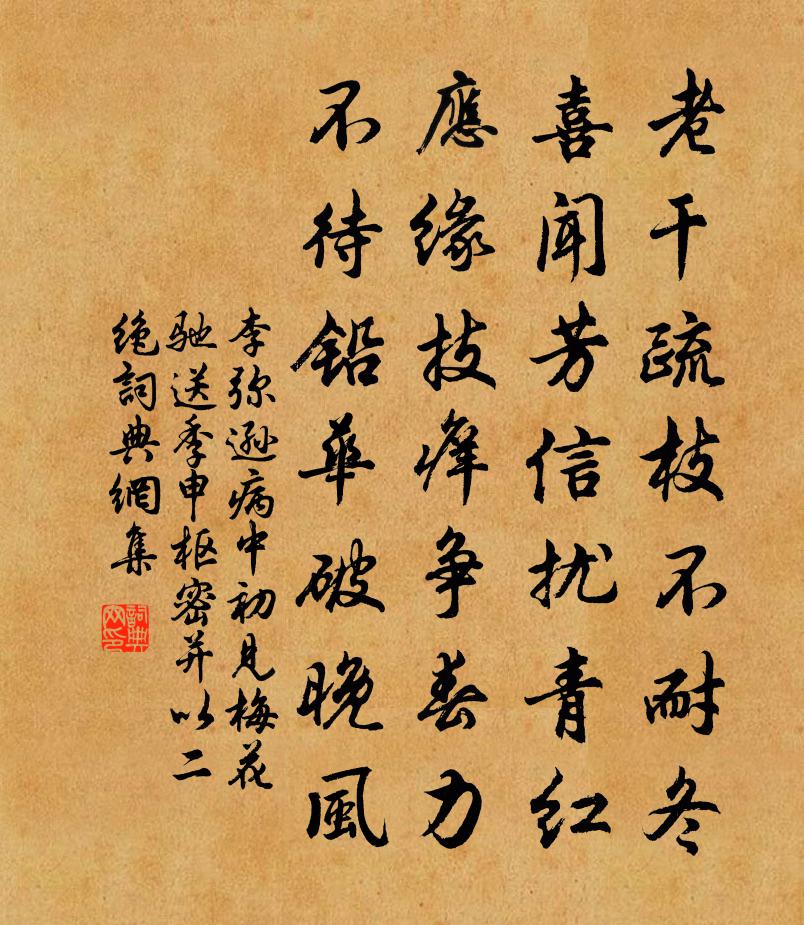 老干疏枝不耐冬
喜闻芳信扰青红
應緣技癢争春力
不待鉛華破晚風
李弥遜病中初見梅花
馳送季申枢密并以二
絶詞典網集
詞典网印